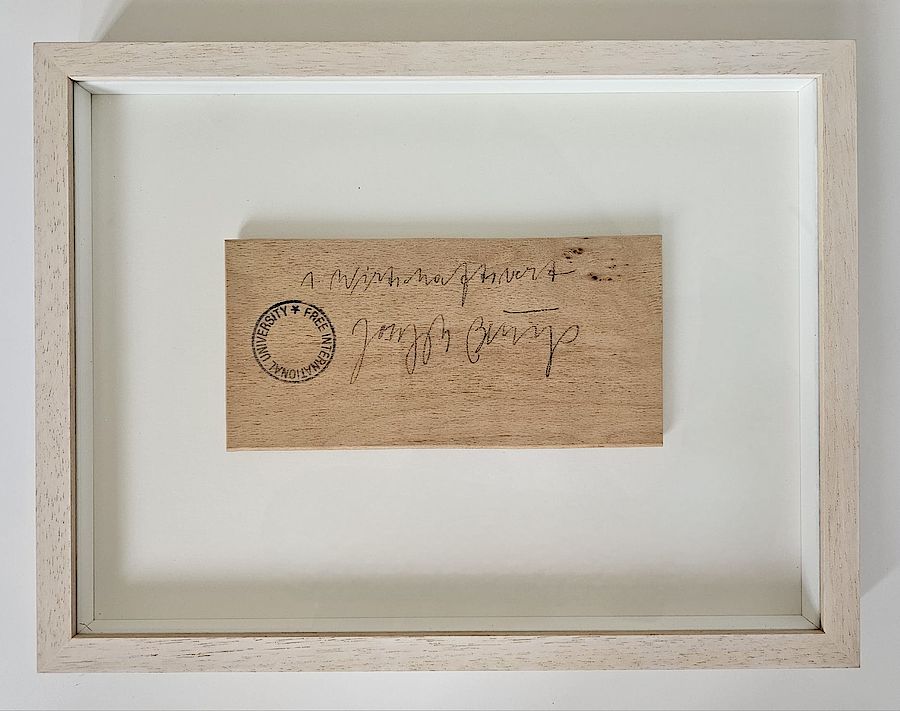 1 Wirtschaftswert
Joseph Beuys
FREE INTERNATIONAL UNIVERSITY ★